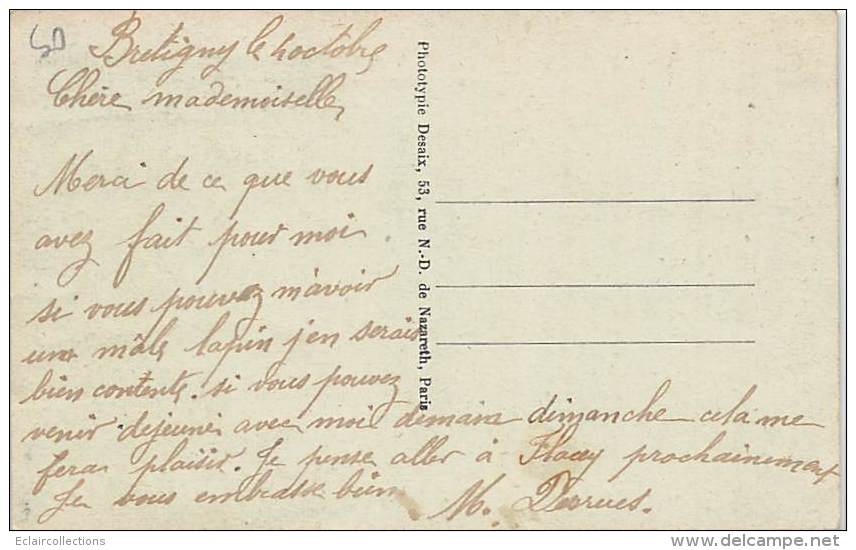 SD
Bretigny le 4 octobre
Chère mademoiselle
Merci de ce que vous
avez fait pour moi
si vous pouvez m'avoir
un mâle lapin j'en serais
bien contente. si vous pouvez
venir dejeuner avec moi demain dimanche cela me
fera plaisir. Je pense aller à Flacey prochainement
Je vous embrasse bien
M. Derrues.
Phototypie Desaix, 53, rue N.-D. de Nazareth, Paris
Eclaircollections
www.delcampe.net